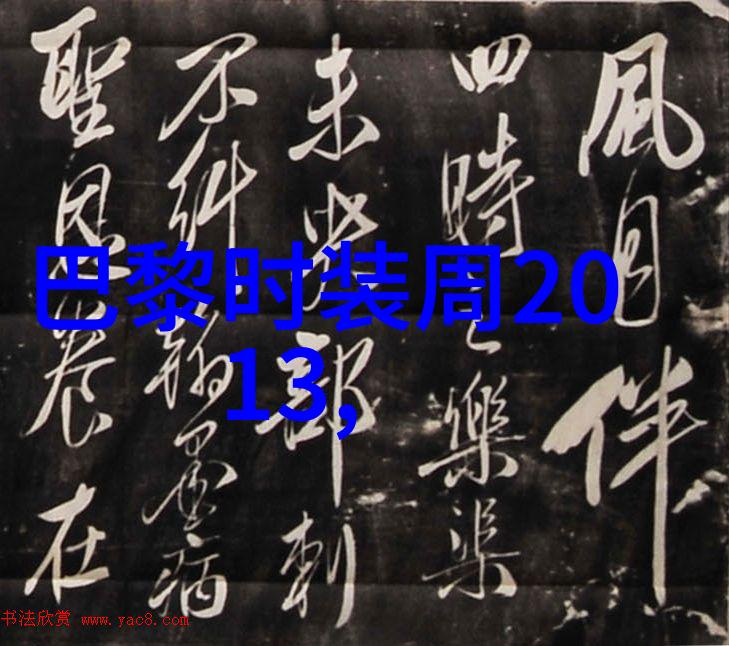 風月伴
四時之樂
未部刺
不翰墨病
聖恩養在
巴黎时装周20
13,
书法欣赏 www.yac8.com